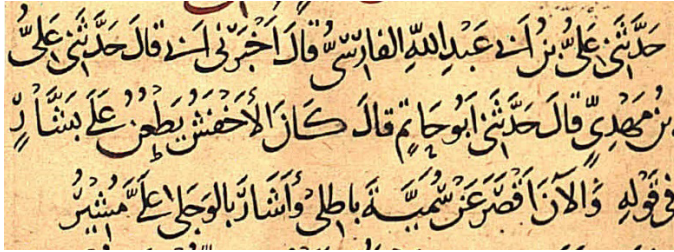 حَدَّثَنِى عَلِىُّ بْنُ أَبِى عَبْدِ اللهِ الفَارِسِىُّ قَالَ أَخْبَرَنِى أَبِى قَالَ حَدَّثَنِى عَلِىُّ
بْنُ مَهْدِىٍّ قَالَ حَدَّثَنِى أَبُو حَاتِمٍ قَالَ كَانَ الأَخْفَشُ يَطْعُنُ عَلَى بَشَّارٍ
فِى قَوْلِهِ وَالآنَ أَقْصَرَ عَنْ سُمَيَّةَ بَاطِلِى وَأَشَارَ بِالوَجَلَى عَلَىَّ مُشِيرُ